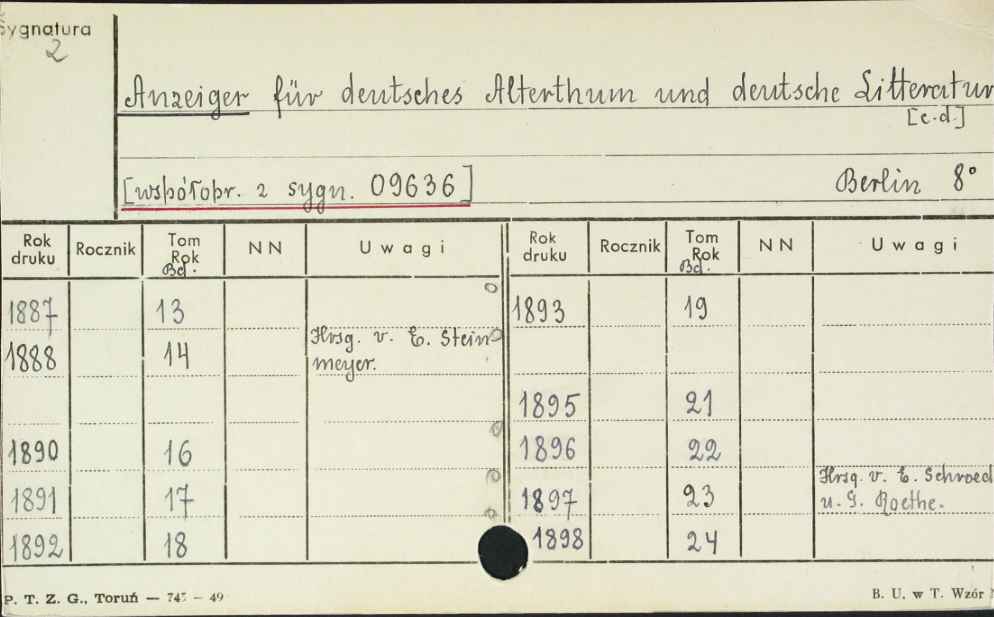 Sygnatura
2
Anzeiger für deutsches Alterthum und deutsche Litteratur
[c.d.]
[współopr. z sygn. 09636]
Berlin 8°
Rok druku Rocznik Tom Rok Bd. NN Uwagi Rok druku Rocznik Tom Rok Bd. NN Uwagi
1887 13 1893 19
Hrsg. v. E. Stein
1888 14 meyer.
1895 21
1890 16 1896 22
Hrsg. v. E. Schroed
1891 17 1897 23 u. G. Roethe.
1892 18 1898 24
P. T. Z. G., Toruń — 745 — 49
B. U. w T. Wzór